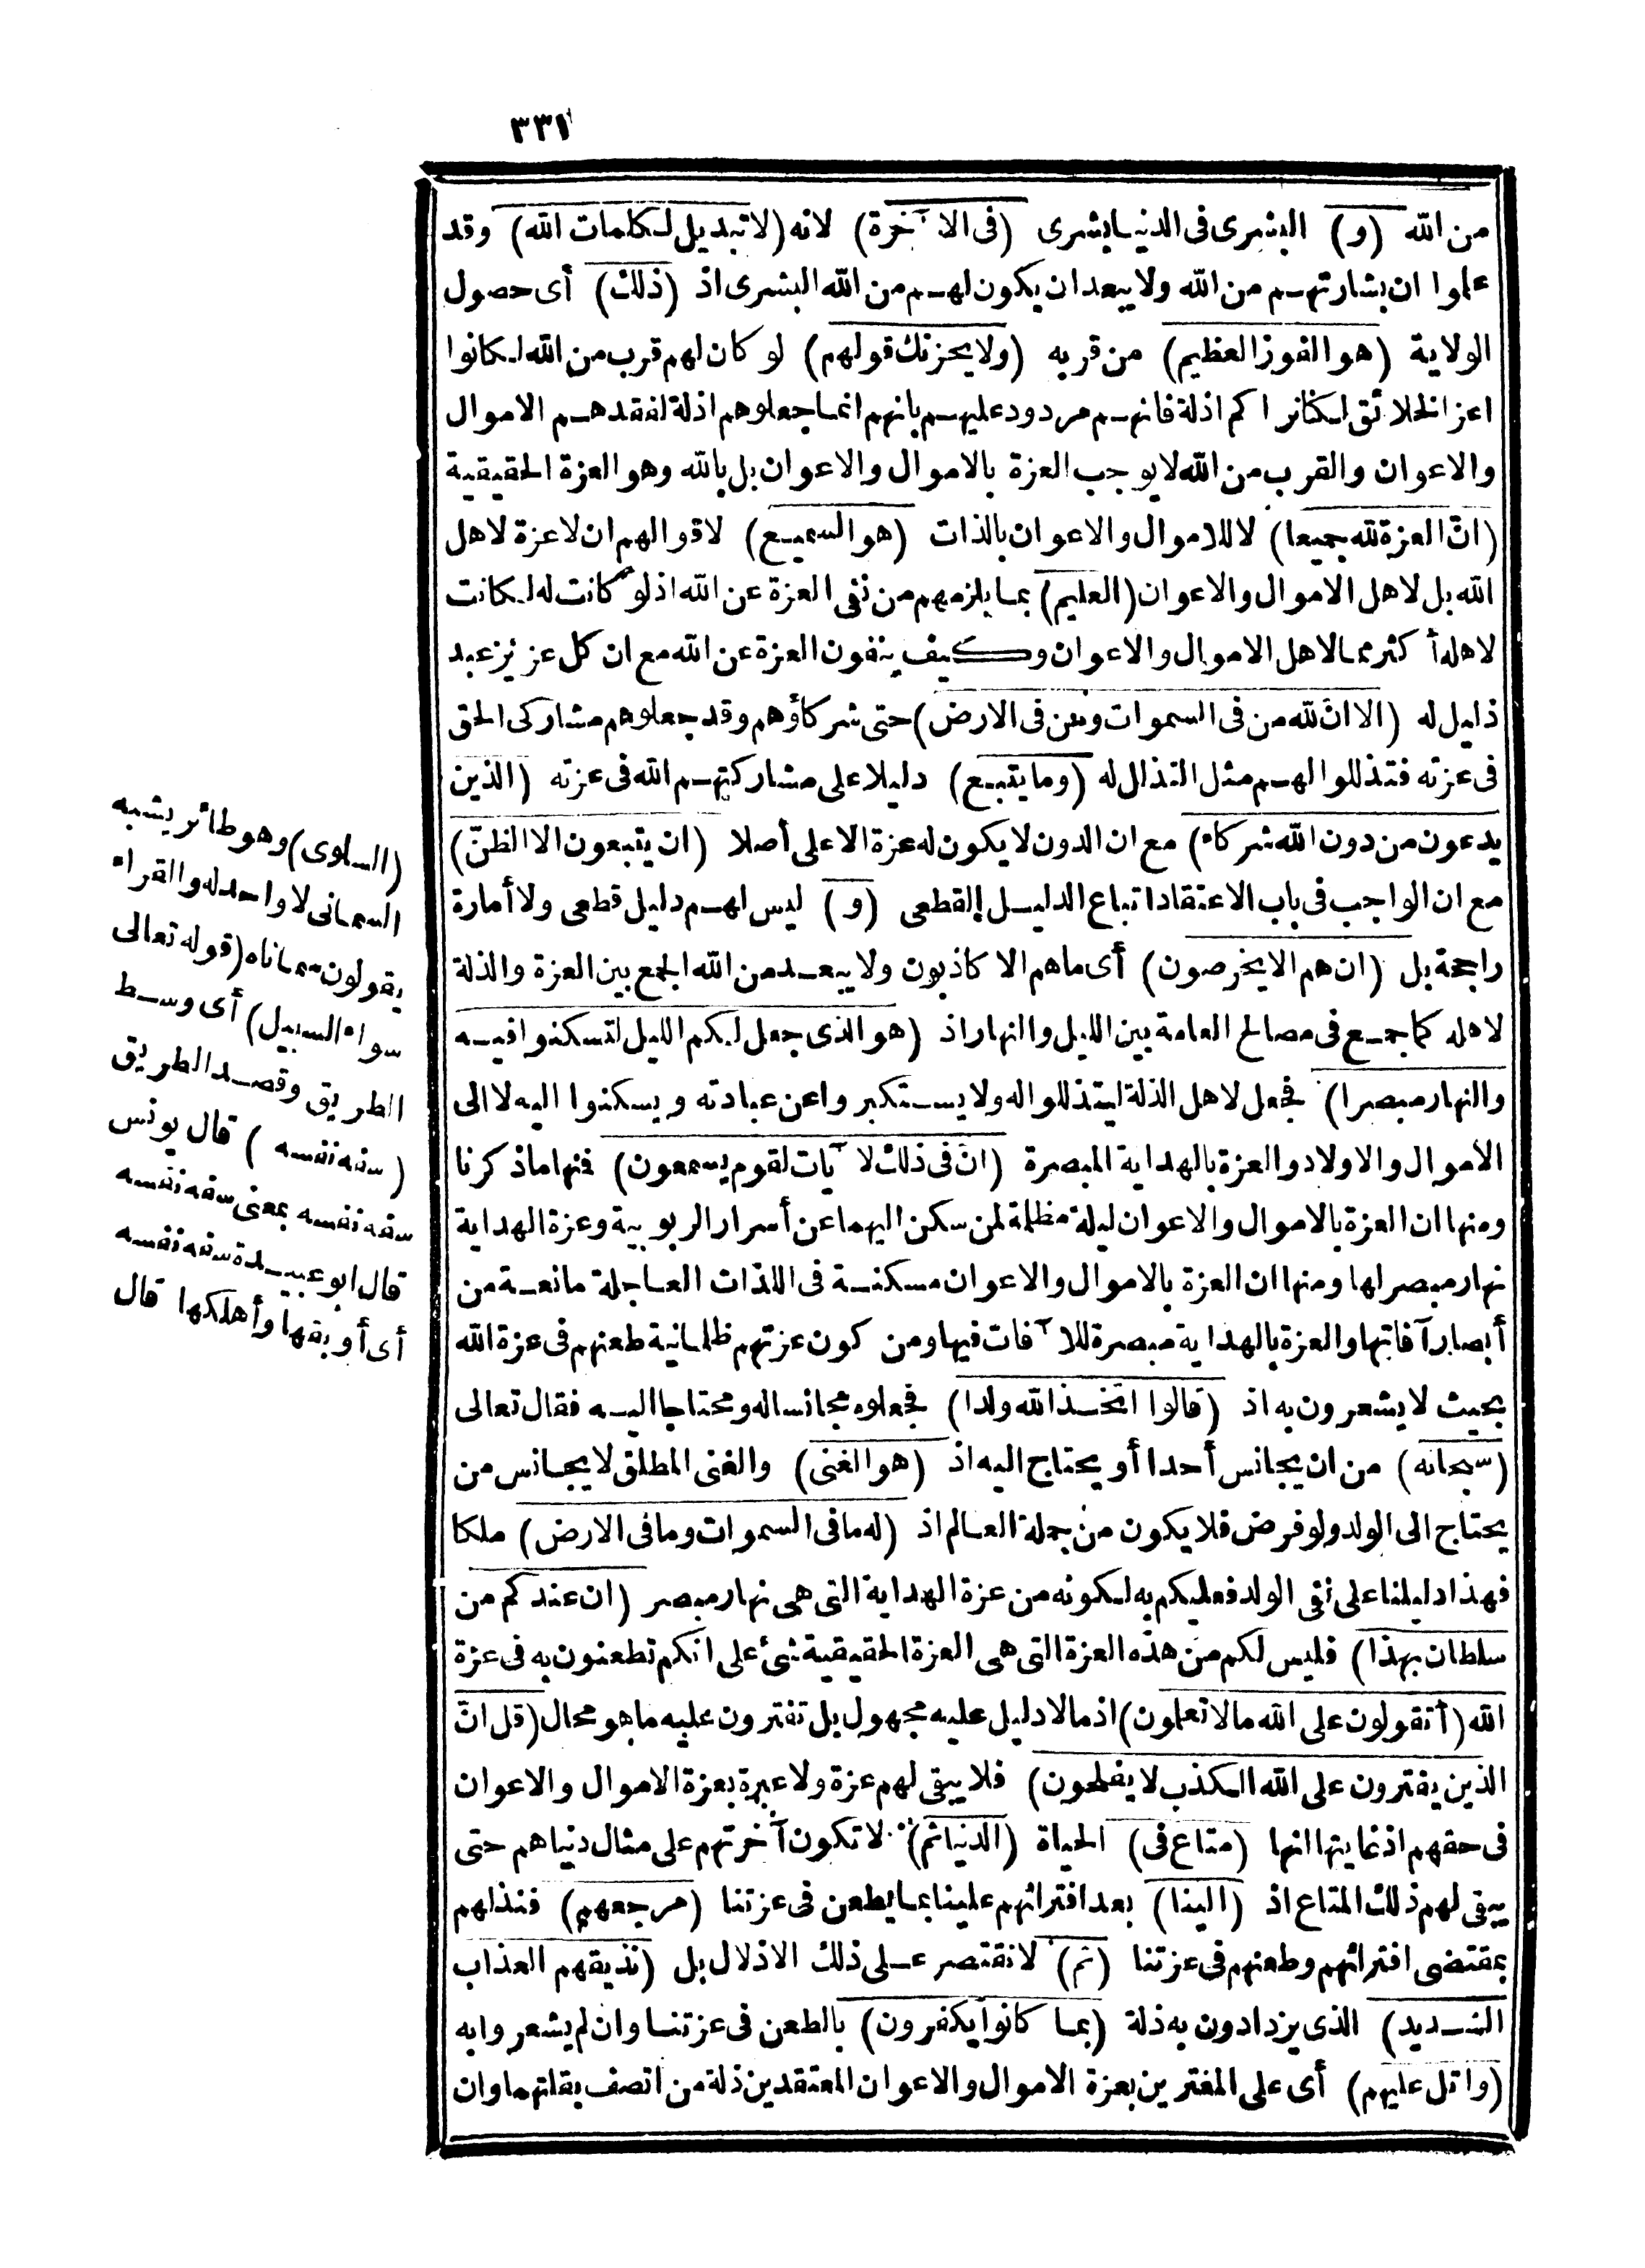 ٣٣١
من الله (و) البشرى فى الدنيا بشرى (فى الآخرة) لانه (لا تبديل لكلمات الله) وقد
علموا ان بشارتهم من الله ولا يبعد ان يكون لهم من الله البشرى اذ (ذلك) أى حصول
الولاية (هو الفوز العظيم) من قربه (ولا يحزنك قولهم) لو كان لهم قرب من الله لكانوا
اعز الخلائق لكنانراكم اذلة فانهم مردود عليهم بانهم انما جعلوهم اذلة لفقدهم الاموال
والاعوان والقرب من الله لا يوجب العزة بالاموال والاعوان بل بالله وهو العزة الحقيقية
(انّ العزة لله جميعا) لا للاموال والاعوان بالذات (هو السميع) لاقوالهم ان لا عزة لاهل
الله بل لاهل الاموال والاعوان (العليم) بما يلزمهم من نفى العزة عن الله اذ لو كانت له لكانت
لاهله أكثر مما لاهل الاموال والاعوان وكيف ينفون العزة عن الله مع ان كل عزيز عبد
ذليل له (الا انّ لله من فى السموات ومن فى الارض) حتى شركاؤهم وقد جعلوهم مشاركى الحق
فى عزته فتذللوا لهم مثل التذلل له (وما يتبع) دليلا على مشاركتهم الله فى عزته (الذين
يدعون من دون الله شركاء) مع ان الدون لا يكون له عزة الاعلى أصلا (ان يتبعون الا الظنّ)
مع ان الواجب فى باب الاعتقاد اتباع الدليل القطعى (و) ليس لهم دليل قطعى ولا أمارة
راجحة بل (ان هم الا يخرصون) أى ما هم الا كاذبون ولا يبعد من الله الجمع بين العزة والذلة
لاهله كما جمع فى مصالح العامة بين الليل والنهار اذ (هو الذى جعل لكم الليل لتسكنوا فيه
والنهار مبصرا) فجعل لاهل الذلة ليتذللوا له ولا يستكبروا عن عبادته ويسكنوا اليه لا الى
الاموال والاولاد والعزة بالهداية المبصرة (انّ فى ذلك لآيات لقوم يسمعون) فنها ماذكرنا
ومنها ان العزة بالاموال والاعوان ليلة مظلمة لمن سكن اليهما عن أسرار الربوبية وعزة الهداية
نهار مبصر لها ومنها ان العزة بالاموال والاعوان مسكنة فى اللذات العاجلة مانعة من
أبصار آفاتها والعزة بالهداية مبصرة للآفات فيها ومن كون عزتهم ظلمانية طعنهم فى عزة الله
بحيث لا يشعرون به اذ (قالوا اتخذ الله ولدا) فجعلوه مجانسا له ومحتاجا اليه فقال تعالى
(سبحانه) من ان يجانس أحدا أو يحتاج اليه اذ (هو الغنى) والغنى المطلق لا يجانس من
يحتاج الى الولد ولو فرض فلا يكون من جملة العالم اذ (له ما فى السموات وما فى الارض) ملكا
فهذا دليلنا على نفى الولد فعليكم به لكونه من عزة الهداية التى هى نهار مبصر (ان عندكم من
سلطان بهذا) فليس لكم من هذه العزة التى هى العزة الحقيقية شئ على انكم تطعنون به فى عزة
الله (أتقولون على الله مالا تعلمون) اذ مالا دليل عليه مجهول بل تفترون عليه ما هو محال (قل انّ
الذين يفترون على الله الكذب لا يفلحون) فلا يبقى لهم عزة ولا عبرة بعزة الاموال والاعوان
فى حقهم اذ غايتها انها (متاع فى) الحياة (الدنيا ثم) لا تكون آخرتهم على مثال دنياهم حتى
يبقى لهم ذلك المتاع اذ (الينا) بعد افترائهم علينا بما يطعن فى عزتنا (مرجعهم) فنذلهم
بمقتضى افترائهم وطعنهم فى عزتنا (ثم) لا نقتصر على ذلك الاذلال بل (نذيقهم العذاب
الشديد) الذى يزدادون به ذلة (بما كانوا يكفرون) بالطعن فى عزتنا وان لم يشعروا به
(واتل عليهم) أى على المفترين بعزة الاموال والاعوان المعتقدين ذلة من اتصف بقلتهما وان
(السلوى) وهو طائر يشبه
السمانى لا واحد له والقراء
يقولون سماناه (قوله تعالى
سواء السبيل) أى وسط
الطريق وقصد الطريق
(سفه نفسه) قال يونس
سفه نفسه بمعنى سفه نفسه
قال ابو عبيدة سفه نفسه
أى أوبقها وأهلكها قال